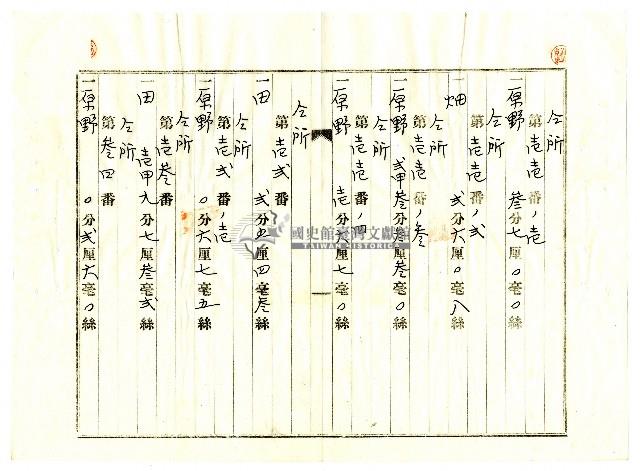 仝所
第壱壱番ノ壱
一原野 叁分七厘〇毫〇絲
仝所
第壱壱番ノ弐
一畑 弐分六厘〇毫八絲
仝所
第壱壱番ノ叁
一原野 弐甲叁分叁厘叁毫〇絲
仝所
第壱壱番ノ四
一原野 壱分六厘七毫〇絲
仝所
第壱弐番
一田 弐分五厘四毫叁絲
仝所
第壱弐番ノ壱
一原野 〇分六厘七毫五絲
仝所
第壱叁番
一田 壱甲九分七厘叁毫弐絲
仝所
第叁四番
一原野 〇分弐厘六毫〇絲
國史館臺灣文獻館
TAIWAN HISTORICA